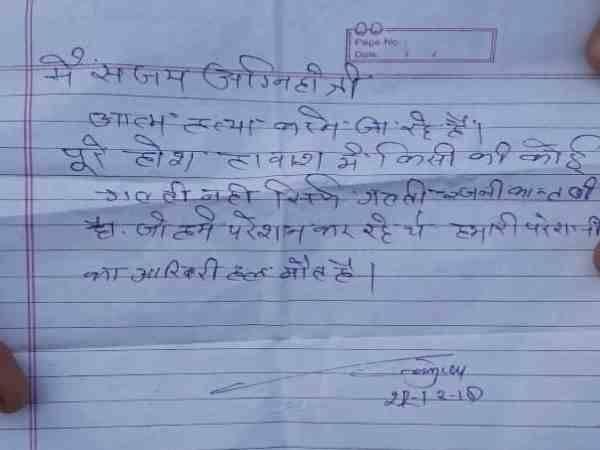 Page No.
Date
मै संजय अग्निहोत्री
आत्म हत्या करने जा रहे है।
पूरे होश हावाश मे किसी की कोई
गलती नही सिर्फ गलती
है. जो हमे परेशान कर रहे थे हमारी परेशानी
का आखिरी हल मौत है।
22-12-18